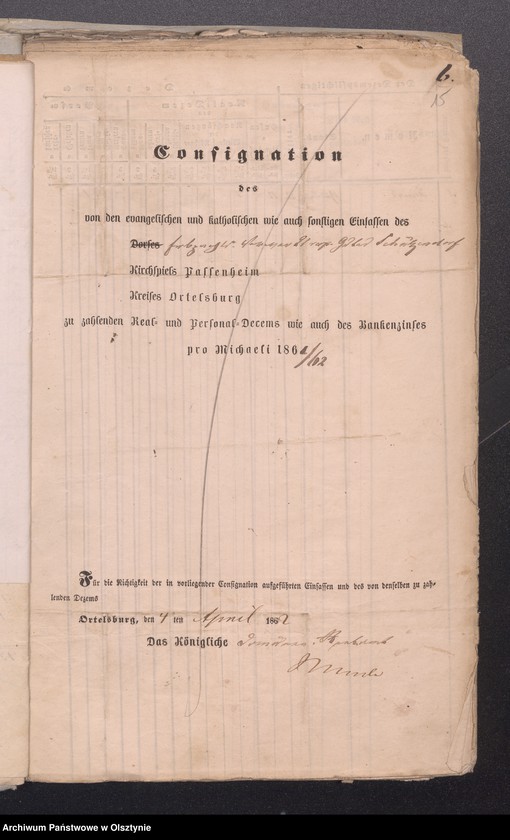 6.
15
Consignation
des
von den evangelischen und katholischen wie auch sonstigen Einsassen des
Dorfes
Kirchspiels Passenheim
Kreises Ortelsburg
zu zahlenden Real- und Personal-Decems wie auch des Bankenzinses
pro Michaeli 1861/62
Für die Richtigkeit der in vorliegender Consignation aufgeführten Einsassen und des von denselben zu zah-
lenden Dezems
Ortelsburg, den 4 ten April 1862
Das Königliche Domänen
Archiwum Państwowe w Olsztynie